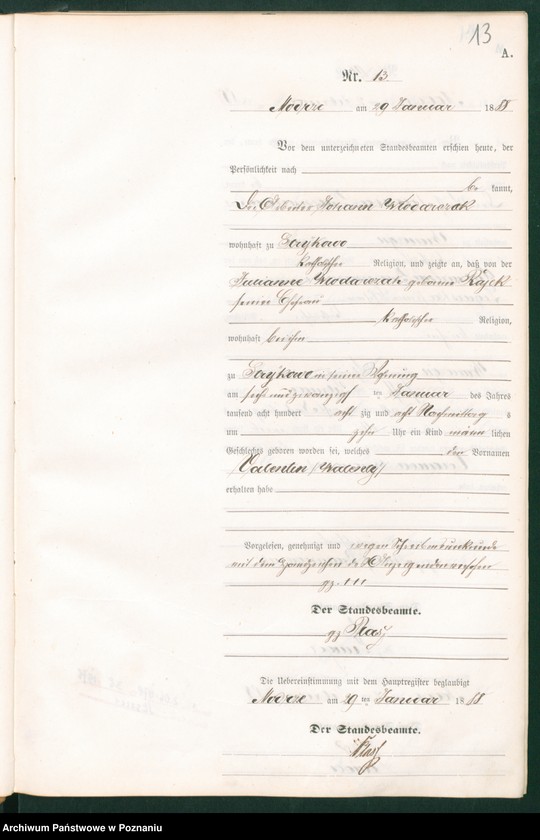 13
A.
Nr. 13
am 29 Januar 1888
Vor dem unterzeichneten Standesbeamten erschien heute, der
Persönlichkeit nach
be kannt,
Der Arbeiter Johann Wlodarczak
wohnhaft zu
katholischer Religion, und zeigte an, daß von der
Julianne Wlodarczak geborne
seiner Ehefrau
katholischer Religion,
wohnhaft bei ihm
zu in seiner Wohnung
am sechs und zwanzigst ten Januar des Jahres
tausend acht hundert acht zig und acht Nachmittag s
um zehn Uhr ein Kind männ lichen
Geschlechts geboren worden sei, welches den Vornamen
Valentin
erhalten habe
Vorgelesen, genehmigt und wegen Schreibensunkunde
mit dem Handzeichen des Anzeigenden versehen
gz. +++
Der Standesbeamte.
gz
Die Uebereinstimmung mit dem Hauptregister beglaubigt
am 29 ten Januar 1888
Der Standesbeamte.
Archiwum Państwowe w Poznaniu